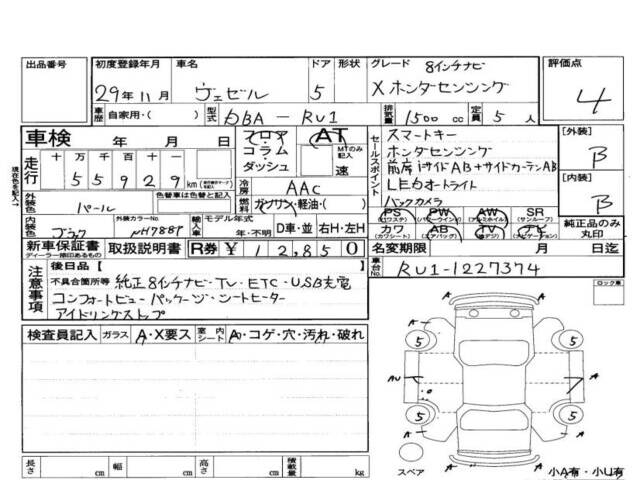 出品番号
初度登録年月 車名 ドア 形状 グレード 8インチナビ 評価点
29年11月 ヴェゼル 5 X ホンダセンシング 4
車歴 自家用・( ) 型式 DBA-RU1 排気量 1500cc 定員 5人
車検 年 月 日 フロア コラム・ダッシュ AT MTのみ記入 速
走行 十万千百十一
55929km
現在色を記入→
外装色 パール 冷房 AAC
燃料 ガソリン・軽油・( )
内装色 外装カラーNo. NH788P 輸入車 モデル年式 年・不明 D車・並 右H・左H
新車保証書 取扱説明書 R券 ¥12,850
ディーラー捺印あるもの
セールスポイント
スマートキー
ホンダセンシング
LEDオートライト
バックカメラ
PS (パワステ) PW (パワーウインド) AW (アルミホイル) SR (サンルーフ)
カワ (カワシート) AB (エアバッグ) TV (テレビ) ナビ (ナビゲーション)
純正品のみ丸印
[外装] B
[内装] B
名変期限 月 日迄
車台No. RU1-1227374
注意事項
後日品[ ]
不具合箇所等 純正8インチナビ・TV・ETC・USB充電
コンフォートビューパッケージ・シートヒーター
アイドリングストップ
ロック車
検査員記入 ガラス A・X要ス 室内シート A・コゲ・穴・汚れ・破れ
A
A
5 5
AU A
5 5
A A
A
スペア 小A有・小U有
長さ cm 幅 cm 高さ cm 積載量 kg